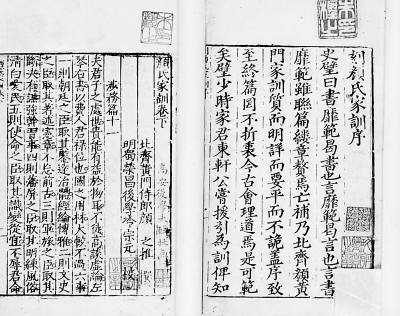 刻顔氏家訓序
史璧曰書靡範曷書也言靡範曷言也言書
靡範雖聯篇縷章贅焉亡補乃北齊顔黄
門家訓質而明詳而要平而不詭盖序致
至終篇罔不折衷今古會理道焉是可範
矣璧少時家君東軒公嘗援引為訓俾知
顔氏家訓卷下
北齊黄門侍郎顔之推撰
明蜀榮昌後學冷宗元校
涉務篇十一
夫君子之處世貴能有益於物耳不徒高談虛論左
琴右書以費人君禄位也國之用材大較不過六事
一則朝廷之臣取其鑒達治體經綸博雅二則文史
之臣取其著述憲章不忘前古三則軍旅之臣取其
斷决有謀强幹習事四則藩屏之臣取其明練風俗
清白愛民五則使命之臣取其識變從宜不辱君命